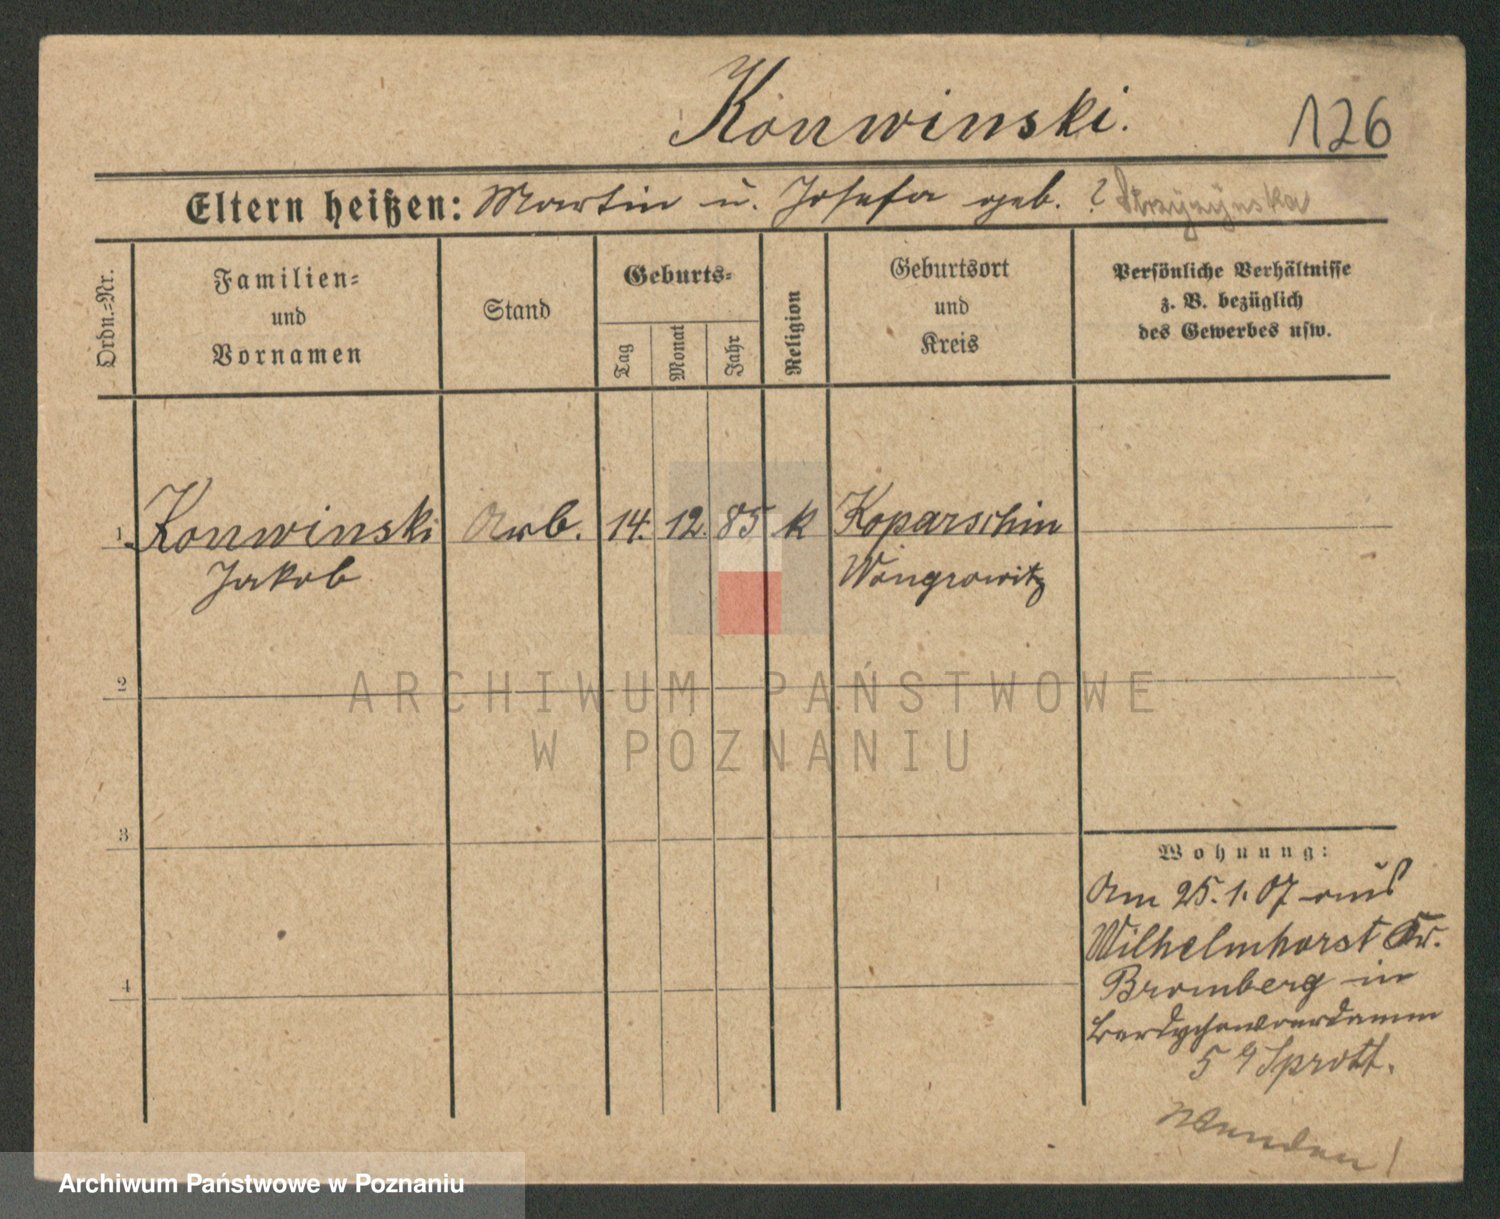 Konwinski.
126
Eltern heißen: Martin u. Josefa geb. ?
Ordn.=Nr.
Familien=
und
Vornamen
Stand
Geburts=
Tag
Monat
Jahr
Religion
Geburtsort
und
Kreis
Persönliche Verhältnisse
z. B. bezüglich
des Gewerbes usw.
1 Konwinski Arb. 14. 12. 85 k Koparschin
Jakob Wongrowitz
2
3
4
Wohnung:
Am 25.1.07 aus
Wilhelmhorst Kr.
Bromberg in
5 Sprott.
Wenden!
ARCHIWUM PAŃSTWOWE
W POZNANIU
Archiwum Państwowe w Poznaniu